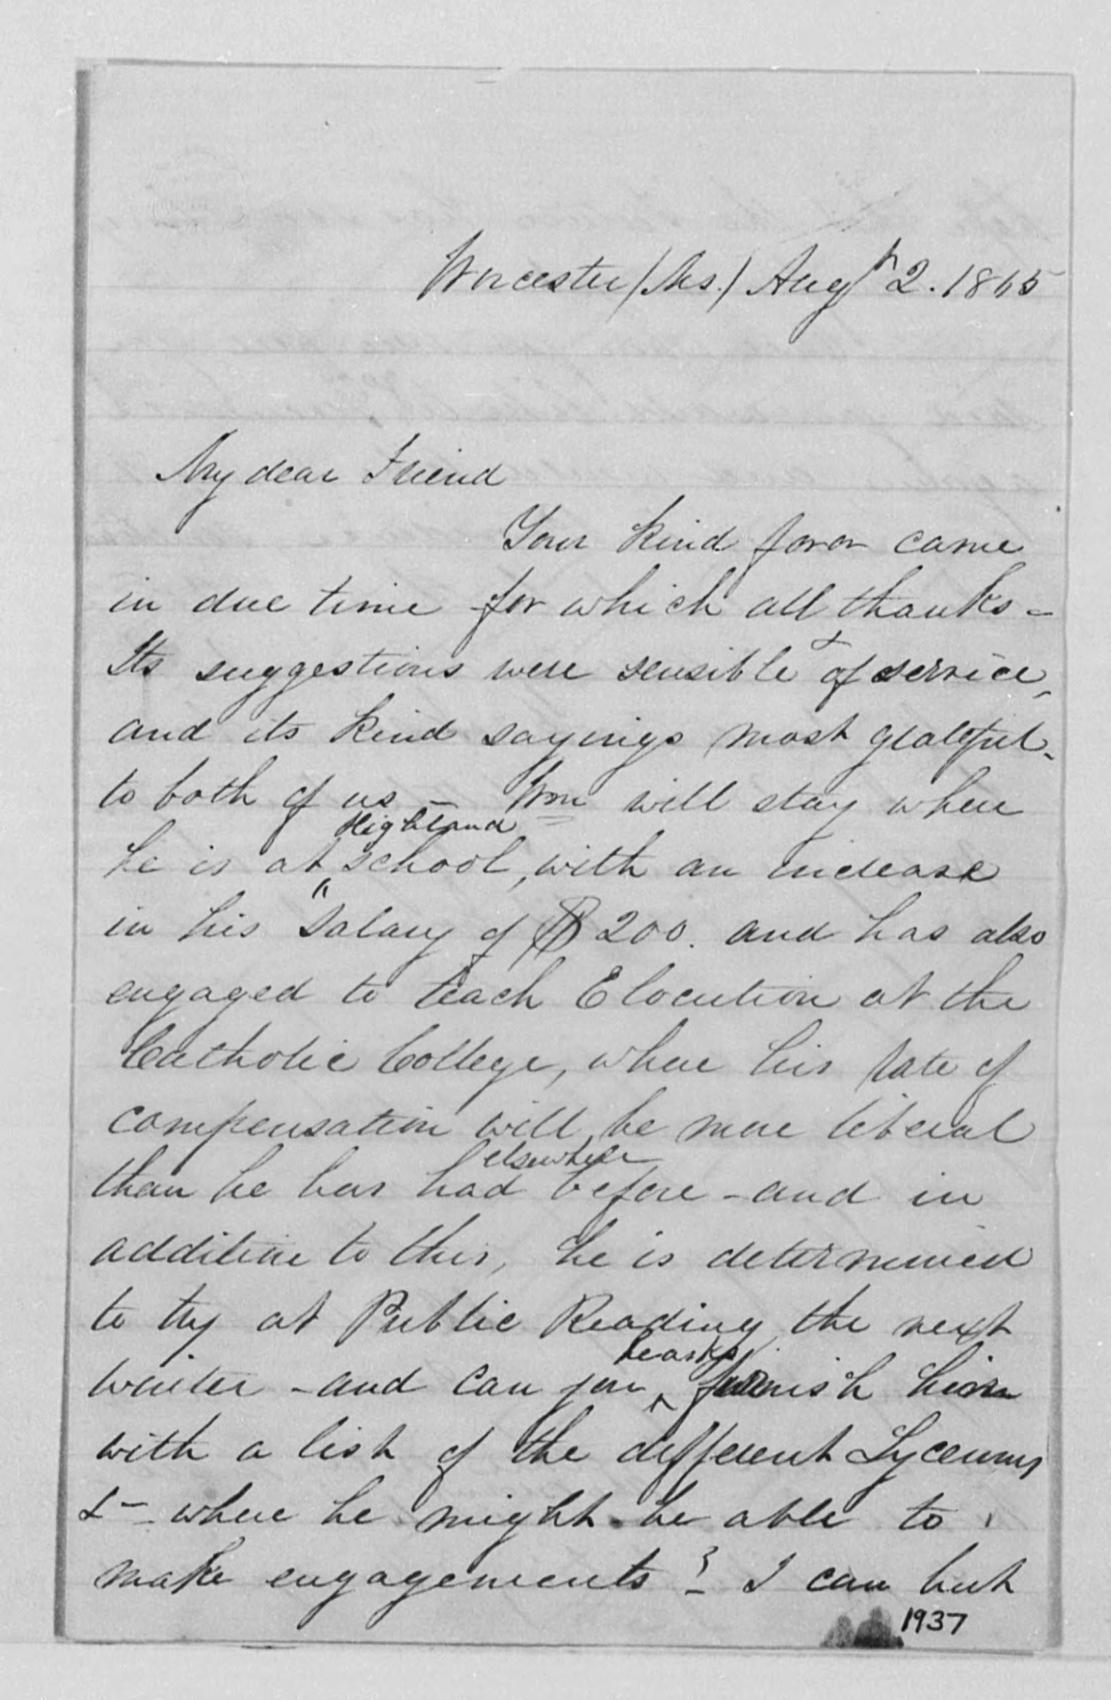 Worcester (Ms.) Aug 2. 1865
My dear Friend
Your kind favor came
in due time for which all thanks -
Its suggestions were sensible & of service,
and its kind sayings most grateful
to both of us - Wm will stay where
Highland
he is at school, with an increase
in his salary of $200. and has also
engaged to teach Elocution at the
Catholic College, where his rate of
compensation will be more liberal
elsewhere
than he has had before - and in
addition to this, he is determined
to try at Public Reading the next
winter - and can you furnish him
with a list of the different Lyceums
& - where he might be able to
make engagements? - I can but
1937